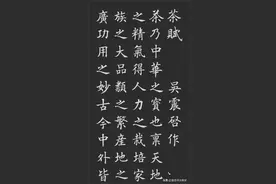 茶賦　吳震啓作、
茶乃中華之寶也稟天地
之精氣得人力之栽培家
族之大品類之繁產地之
廣功用之妙古今中外皆